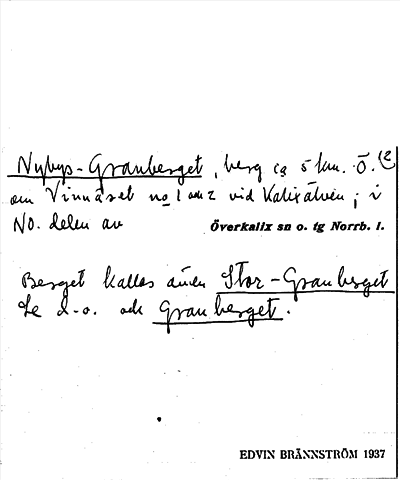 Nybys-Granberget, berg ca 5 km. Ö.
om Vinnäset no 1 och 2 vid Kalixälven; i
NO. delen av Överkalix sn o. tg Norrb. l.
Berget kallas även Stor-Granberget
Se d.o. och Granberget.
EDVIN BRÄNNSTRÖM 1937